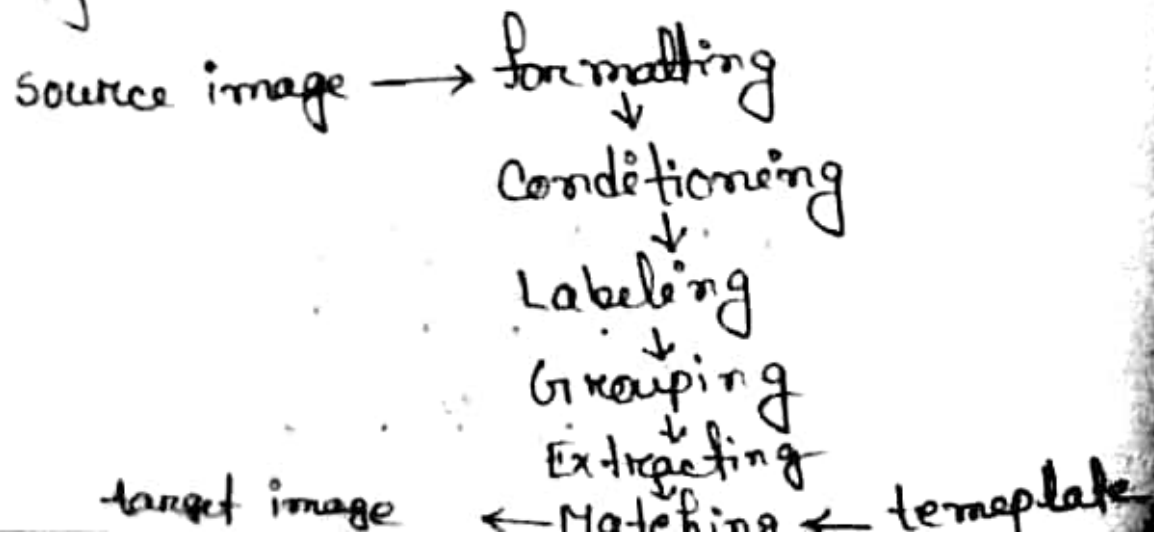 source image → formatting
↓
Conditioning
↓
Labeling
↓
Grouping
↓
Extracting
↓
target image ← Matching ← temeplate